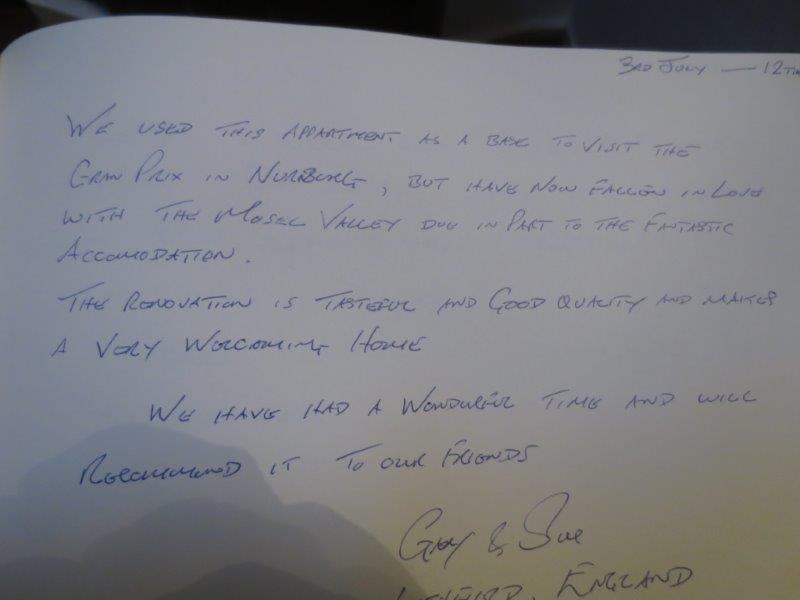 3RD JULY — 12TH
WE USED THIS APPARTMENT AS A BASE TO VISIT THE
GRAN PRIX IN NURBURG, BUT HAVE NOW FALLEN IN LOVE
WITH THE MOSEL VALLEY DUE IN PART TO THE FANTASTIC
ACCOMODATION.
THE RENOVATION IS TASTEFUL AND GOOD QUALITY AND MAKES
A VERY WELCOMING HOME
WE HAVE HAD A WONDERFUL TIME AND WILL
RECOMMEND IT TO OUR FRIENDS
& Sue
ENGLAND